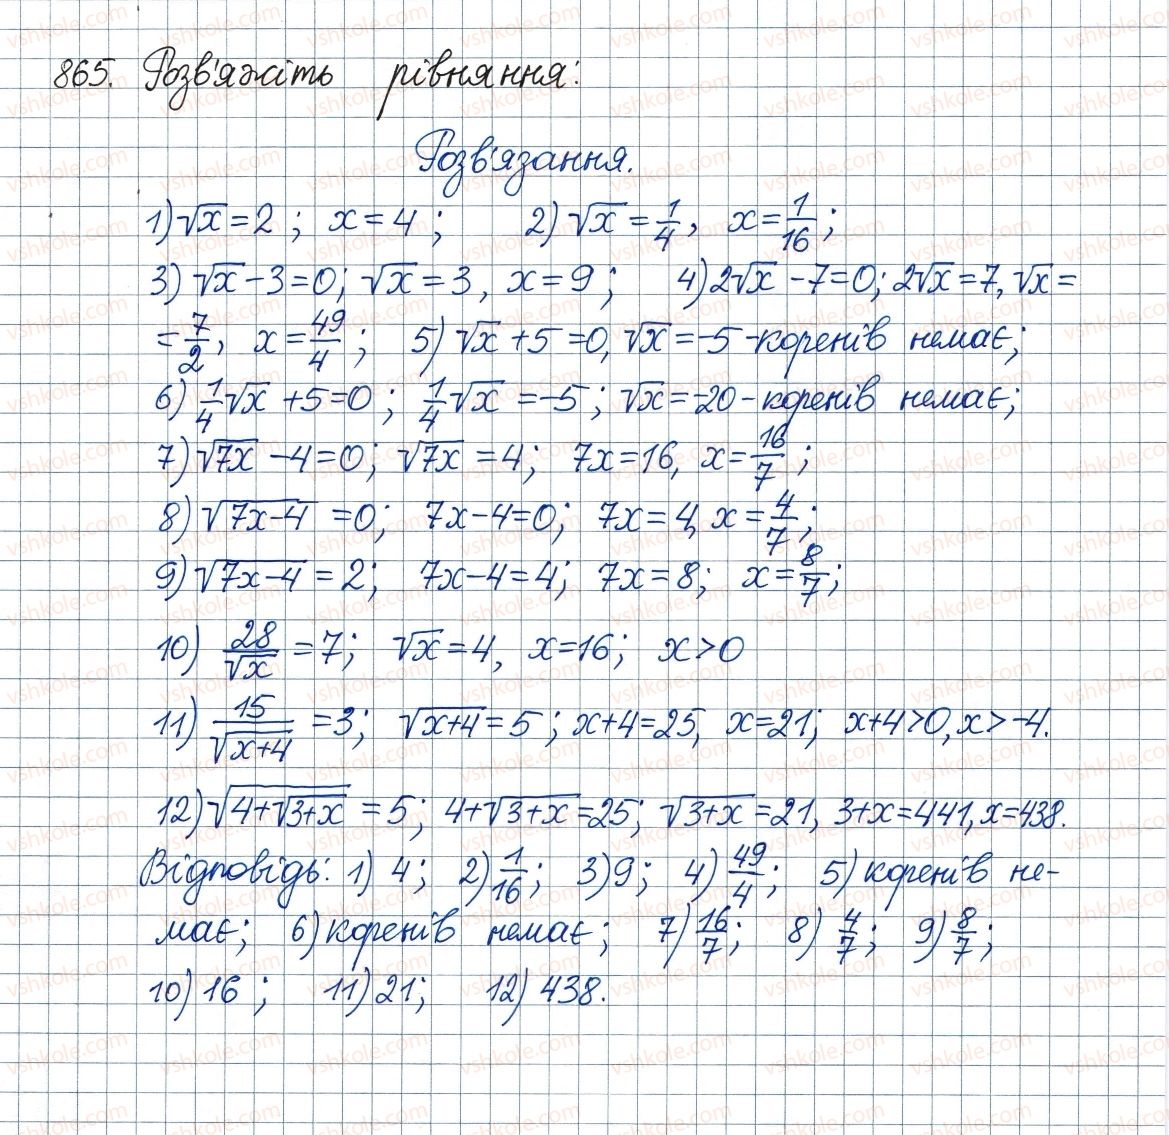 865. Розв'яжіть рівняння:
Розв'язання.
1) √x = 2 ; x = 4 ; 2) √x = 1/4 , x = 1/16 ;
3) √x - 3 = 0; √x = 3, x = 9 ; 4) 2√x - 7 = 0; 2√x = 7, √x =
= 7/2 , x = 49/4 ; 5) √x + 5 = 0, √x = -5 - коренів немає;
6) 1/4 √x + 5 = 0 ; 1/4 √x = -5 ; √x = -20 - коренів немає;
7) √(7x) - 4 = 0; √(7x) = 4; 7x = 16, x = 16/7 ;
8) √(7x-4) = 0; 7x-4=0; 7x = 4, x = 4/7 ;
9) √(7x-4) = 2; 7x-4=4; 7x = 8; x = 8/7 ;
10) 28/√x = 7; √x = 4, x = 16; x > 0
11) 15/√(x+4) = 3; √(x+4) = 5 ; x+4=25, x = 21; x+4>0, x > -4.
12) √(4+√(3+x)) = 5; 4+√(3+x) = 25; √(3+x) = 21, 3+x=441, x=438.
Відповідь: 1) 4; 2) 1/16 ; 3) 9; 4) 49/4 ; 5) коренів не-
має; 6) коренів немає; 7) 16/7 ; 8) 4/7 ; 9) 8/7 ;
10) 16 ; 11) 21; 12) 438.
vshkole.com